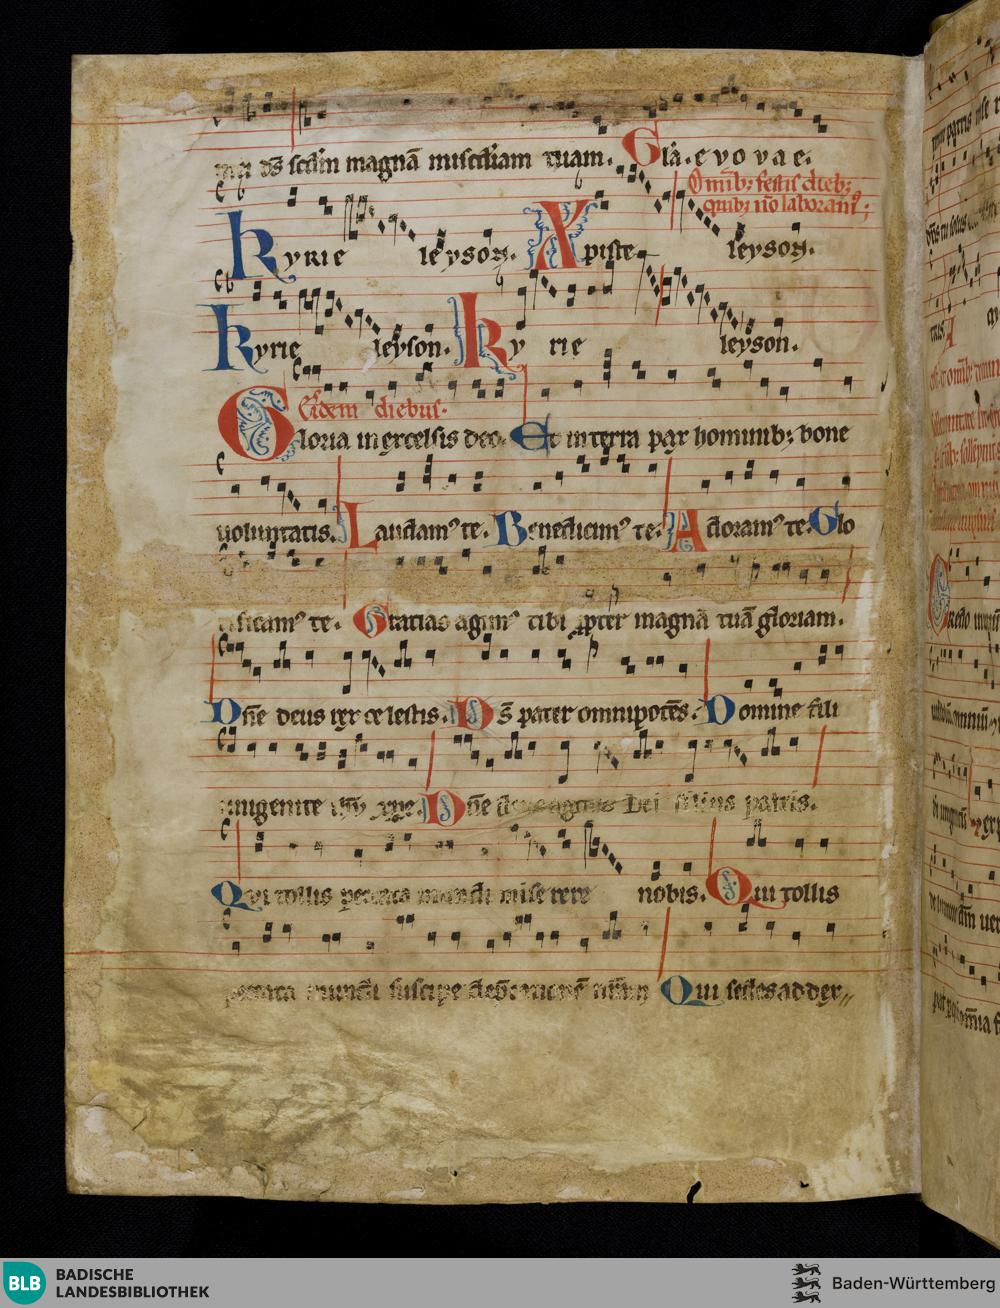 mei ds̄ scd̄m magnā misc̄diam tuam. Gl̄a. e v o v a e.
Omīb; festis dieb;
quib; nō laboramꝰ;
Kyrie leyson. Xpiste leyson.
Kyrie leyson. Ky rie leyson.
Eisdem diebus.
Gloria in excelsis deo. Et in terra pax hominib; bone
voluntatis. Laudamꝰ te. Benedicimꝰ te. Adoramꝰ te. Glo
rificamꝰ te. Gratias agimꝰ tibi ꝓpter magnā tuā gloriam.
Dn̄e deus rex celestis. Ds̄ pater omnipotēs. Domine fili
unigenite ihū xp̄e. Dn̄e deus agnus Dei filius patris.
Qui tollis peccata mundi miserere nobis. Qui tollis
peccata mundi suscipe dep̄cationē nr̄am Qui sedes ad dex//
BLB BADISCHE
LANDESBIBLIOTHEK
Baden-Württemberg